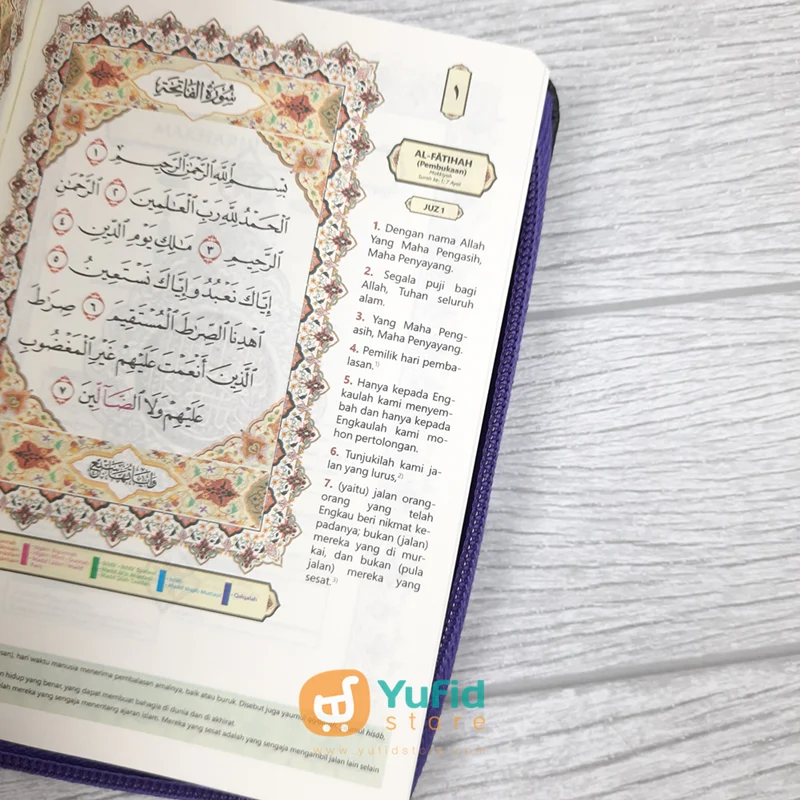 سُورَةُ الفَاتِحَةِ
بِسْمِ اللَّهِ الرَّحْمَٰنِ الرَّحِيمِ ١
الْحَمْدُ لِلَّهِ رَبِّ الْعَالَمِينَ ٢ الرَّحْمَٰنِ
الرَّحِيمِ ٣ مَالِكِ يَوْمِ الدِّينِ ٤
إِيَّاكَ نَعْبُدُ وَإِيَّاكَ نَسْتَعِينُ ٥
اهْدِنَا الصِّرَاطَ الْمُسْتَقِيمَ ٦ صِرَاطَ
الَّذِينَ أَنْعَمْتَ عَلَيْهِمْ غَيْرِ الْمَغْضُوبِ
عَلَيْهِمْ وَلَا الضَّالِّينَ ٧
١
AL-FĀTIḤAH
(Pembukaan)
Makkiyah
Surah ke-1: 7 Ayat
JUZ 1
1. Dengan nama Allah
Yang Maha Pengasih,
Maha Penyayang.
2. Segala puji bagi
Allah, Tuhan seluruh
alam.
3. Yang Maha Peng-
asih, Maha Penyayang.
4. Pemilik hari pemba-
lasan.1)
5. Hanya kepada Eng-
kaulah kami menyem-
bah dan hanya kepada
Engkaulah kami mo-
hon pertolongan.
6. Tunjukilah kami ja-
lan yang lurus,2)
7. (yaitu) jalan orang-
orang yang telah
Engkau beri nikmat ke-
padanya; bukan (jalan)
mereka yang di mur-
kai, dan bukan (pula
jalan) mereka yang
sesat.3)
Qalqalah
hari waktu manusia menerima pembalasan amalnya, baik atau buruk. Disebut juga yaumul hisāb,
hidup yang benar, yang dapat membuat bahagia di dunia dan di akhirat.
mereka yang sengaja menentang ajaran Islam. Mereka yang sesat adalah yang sengaja mengambil jalan lain selain
Yufid
store
www.yufidstore.com